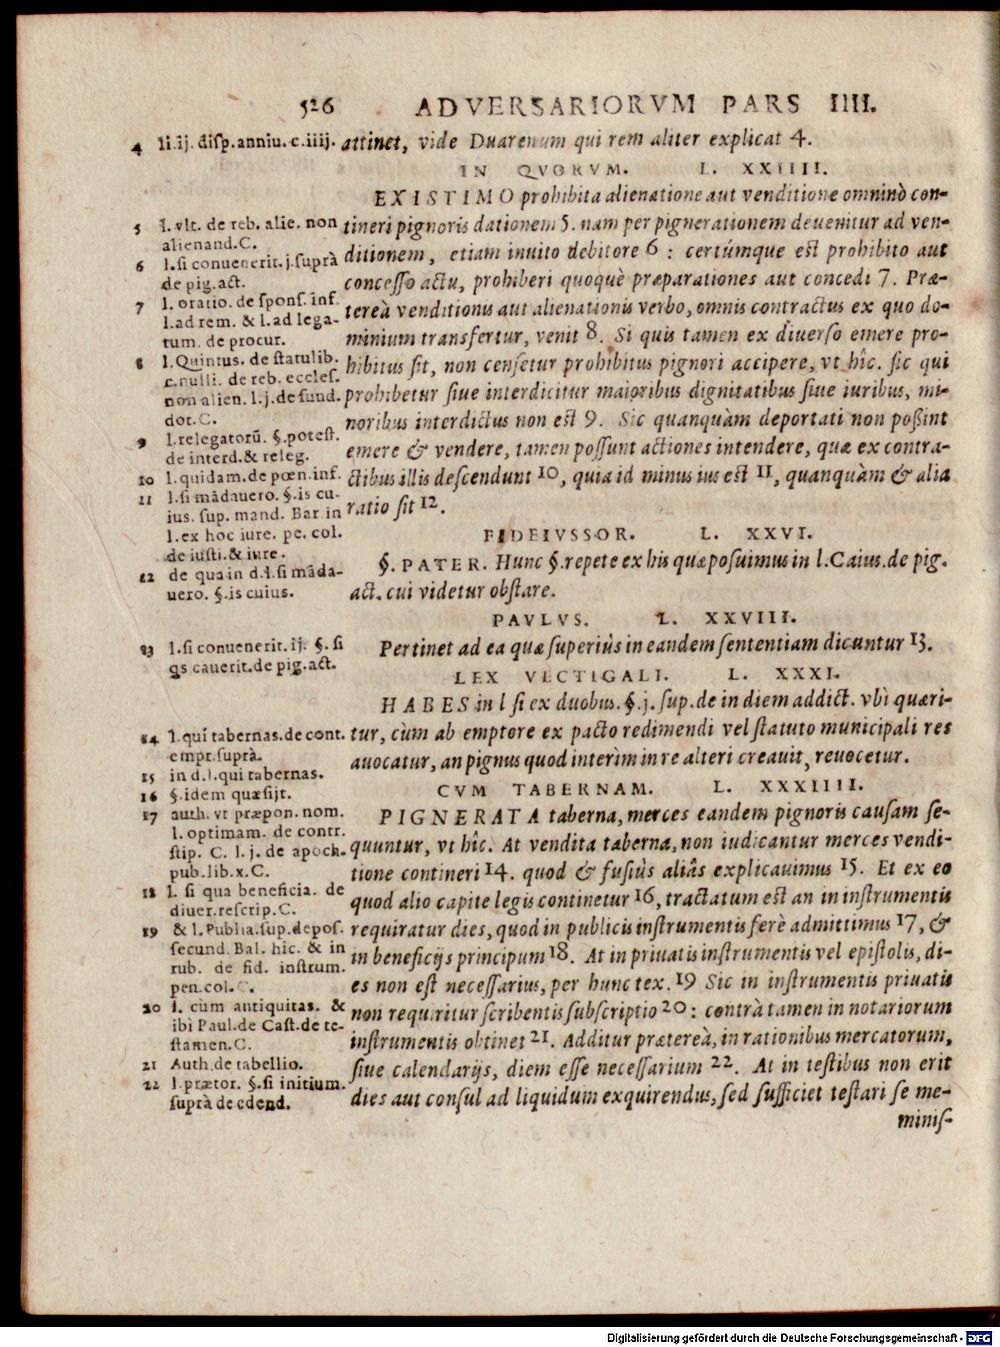 526 ADVERSARIORVM PARS IIII.
attinet, vide Duarenum qui rem aliter explicat 4.
IN QVORVM. L. XXIIII.
EXISTIMO prohibita alienatione aut venditione omninò con-
tineri pignoris dationem 5. nam per pignerationem deuenitur ad ven-
ditionem, etiam inuito debitore 6 : certúmque est prohibito aut
concesso actu, prohiberi quoquè præparationes aut concedi 7. Præ-
tereà venditionis aut alienationis verbo, omnis contractus ex quo do-
minium transfertur, venit 8. Si quis tamen ex diuerso emere pro-
hibitus sit, non censetur prohibitus pignori accipere, vt hîc. sic qui
prohibetur siue interdicitur maioribus dignitatibus siue iuribus, mi-
noribus interdictus non est 9. Sic quanquàm deportati non poßint
emere & vendere, tamen possunt actiones intendere, quæ ex contra-
ctibus illis descendunt 10, quia id minus ius est 11, quanquàm & alia
ratio sit 12.
FIDEIVSSOR. L. XXVI.
§. PATER. Hunc §. repete ex his quæ posuimus in l. Caius. de pig.
act. cui videtur obstare.
PAVLVS. L. XXVIII.
Pertinet ad ea quæ superiùs in eandem sententiam dicuntur 13.
LEX VECTIGALI. L. XXXI.
HABES in l si ex duobus. §. j. sup. de in diem addict. vbi quæri-
tur, cùm ab emptore ex pacto redimendi vel statuto municipali res
auocatur, an pignus quod interim in re alteri creauit, reuocetur.
CVM TABERNAM. L. XXXIIII.
PIGNERATA taberna, merces eandem pignoris causam se-
quuntur, vt hîc. At vendita taberna, non iudicantur merces vendi-
tione contineri 14. quod & fusiùs aliâs explicauimus 15. Et ex eo
quod alio capite legis continetur 16, tractatum est an in instrumentis
requiratur dies, quod in publicis instrumentis ferè admittimus 17, &
in beneficijs principum 18. At in priuatis instrumentis vel epistolis, di-
es non est necessarius, per hunc tex. 19 Sic in instrumentis priuatis
non requiritur scribentis subscriptio 20 : contrà tamen in notariorum
instrumentis obtinet 21. Additur prætereà, in rationibus mercatorum,
siue calendarijs, diem esse necessarium 22. At in testibus non erit
dies aut consul ad liquidum exquirendus, sed sufficiet testari se me-
minis-
4 li. ij. disp. anniu. c. iiij.
5 l. vlt. de reb. alie. non
alienand. C.
6 l. si conuenerit. j. suprà
de pig. act.
7 l. oratio. de spons. inf.
l. ad rem. & l. ad lega-
tum. de procur.
8 l. Quintus. de statulib.
c. nulli. de reb. eccles.
non alien. l. j. de fund.
dot. C.
9 l. relegatorū. §. potest.
de interd. & releg.
10 l. quidam. de pœn. inf.
11 l. si mādauero. §. is cu-
ius. sup. mand. Bar in
l. ex hoc iure. pe. col.
de iusti. & iure.
12 de qua in d. l. si māda-
uero. §. is cuius.
13 l. si conuenerit. ij. §. si
qs cauerit. de pig. act.
14 l. qui tabernas. de cont.
empt. suprà.
15 in d. l. qui tabernas.
16 §. idem quæsijt.
17 auth. vt præpon. nom.
l. optimam. de contr.
stip. C. l. j. de apoch.
pub. lib. x. C.
18 l. si qua beneficia. de
diuer. rescrip. C.
19 & l. Publia. sup. depos.
secund. Bal. hic. & in
rub. de fid. instrum.
pen. col. C.
20 l. cùm antiquitas. &
ibi Paul. de Cast. de te-
stamen. C.
21 Auth. de tabellio.
22 l. prætor. §. si initium.
suprà de edend.
Digitalisierung gefördert durch die Deutsche Forschungsgemeinschaft - DFG